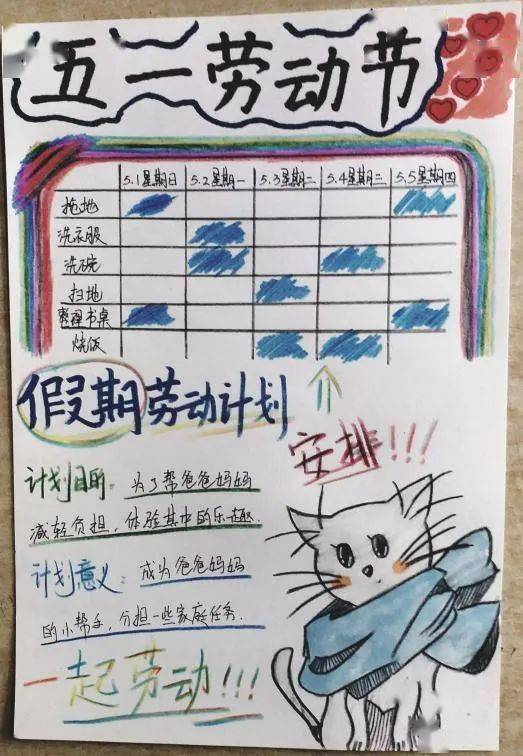 五一劳动节
5.1星期日 5.2星期一 5.3星期二 5.4星期三 5.5星期四
拖地
洗衣服
洗碗
扫地
整理书桌
烧饭
假期劳动计划
安排!!!
计划目的: 为了帮爸爸妈妈
减轻负担,体验其中的乐趣.
计划意义: 成为爸爸妈妈
的小帮手,分担一些家庭任务.
一起劳动!!!